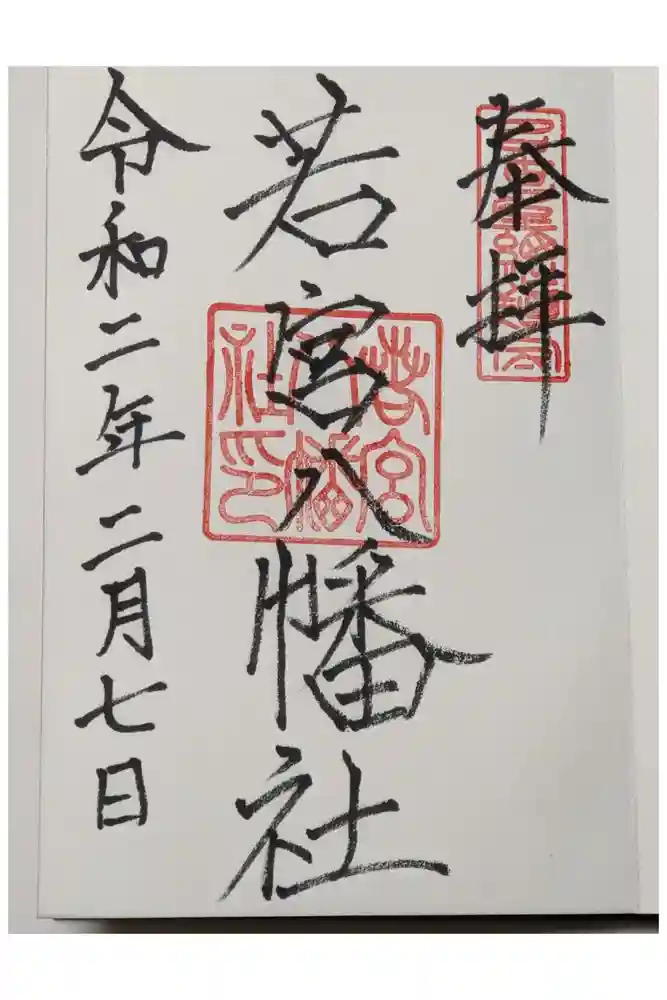 奉拝
若宮八幡社
令和二年二月七日
若宮八幡社印